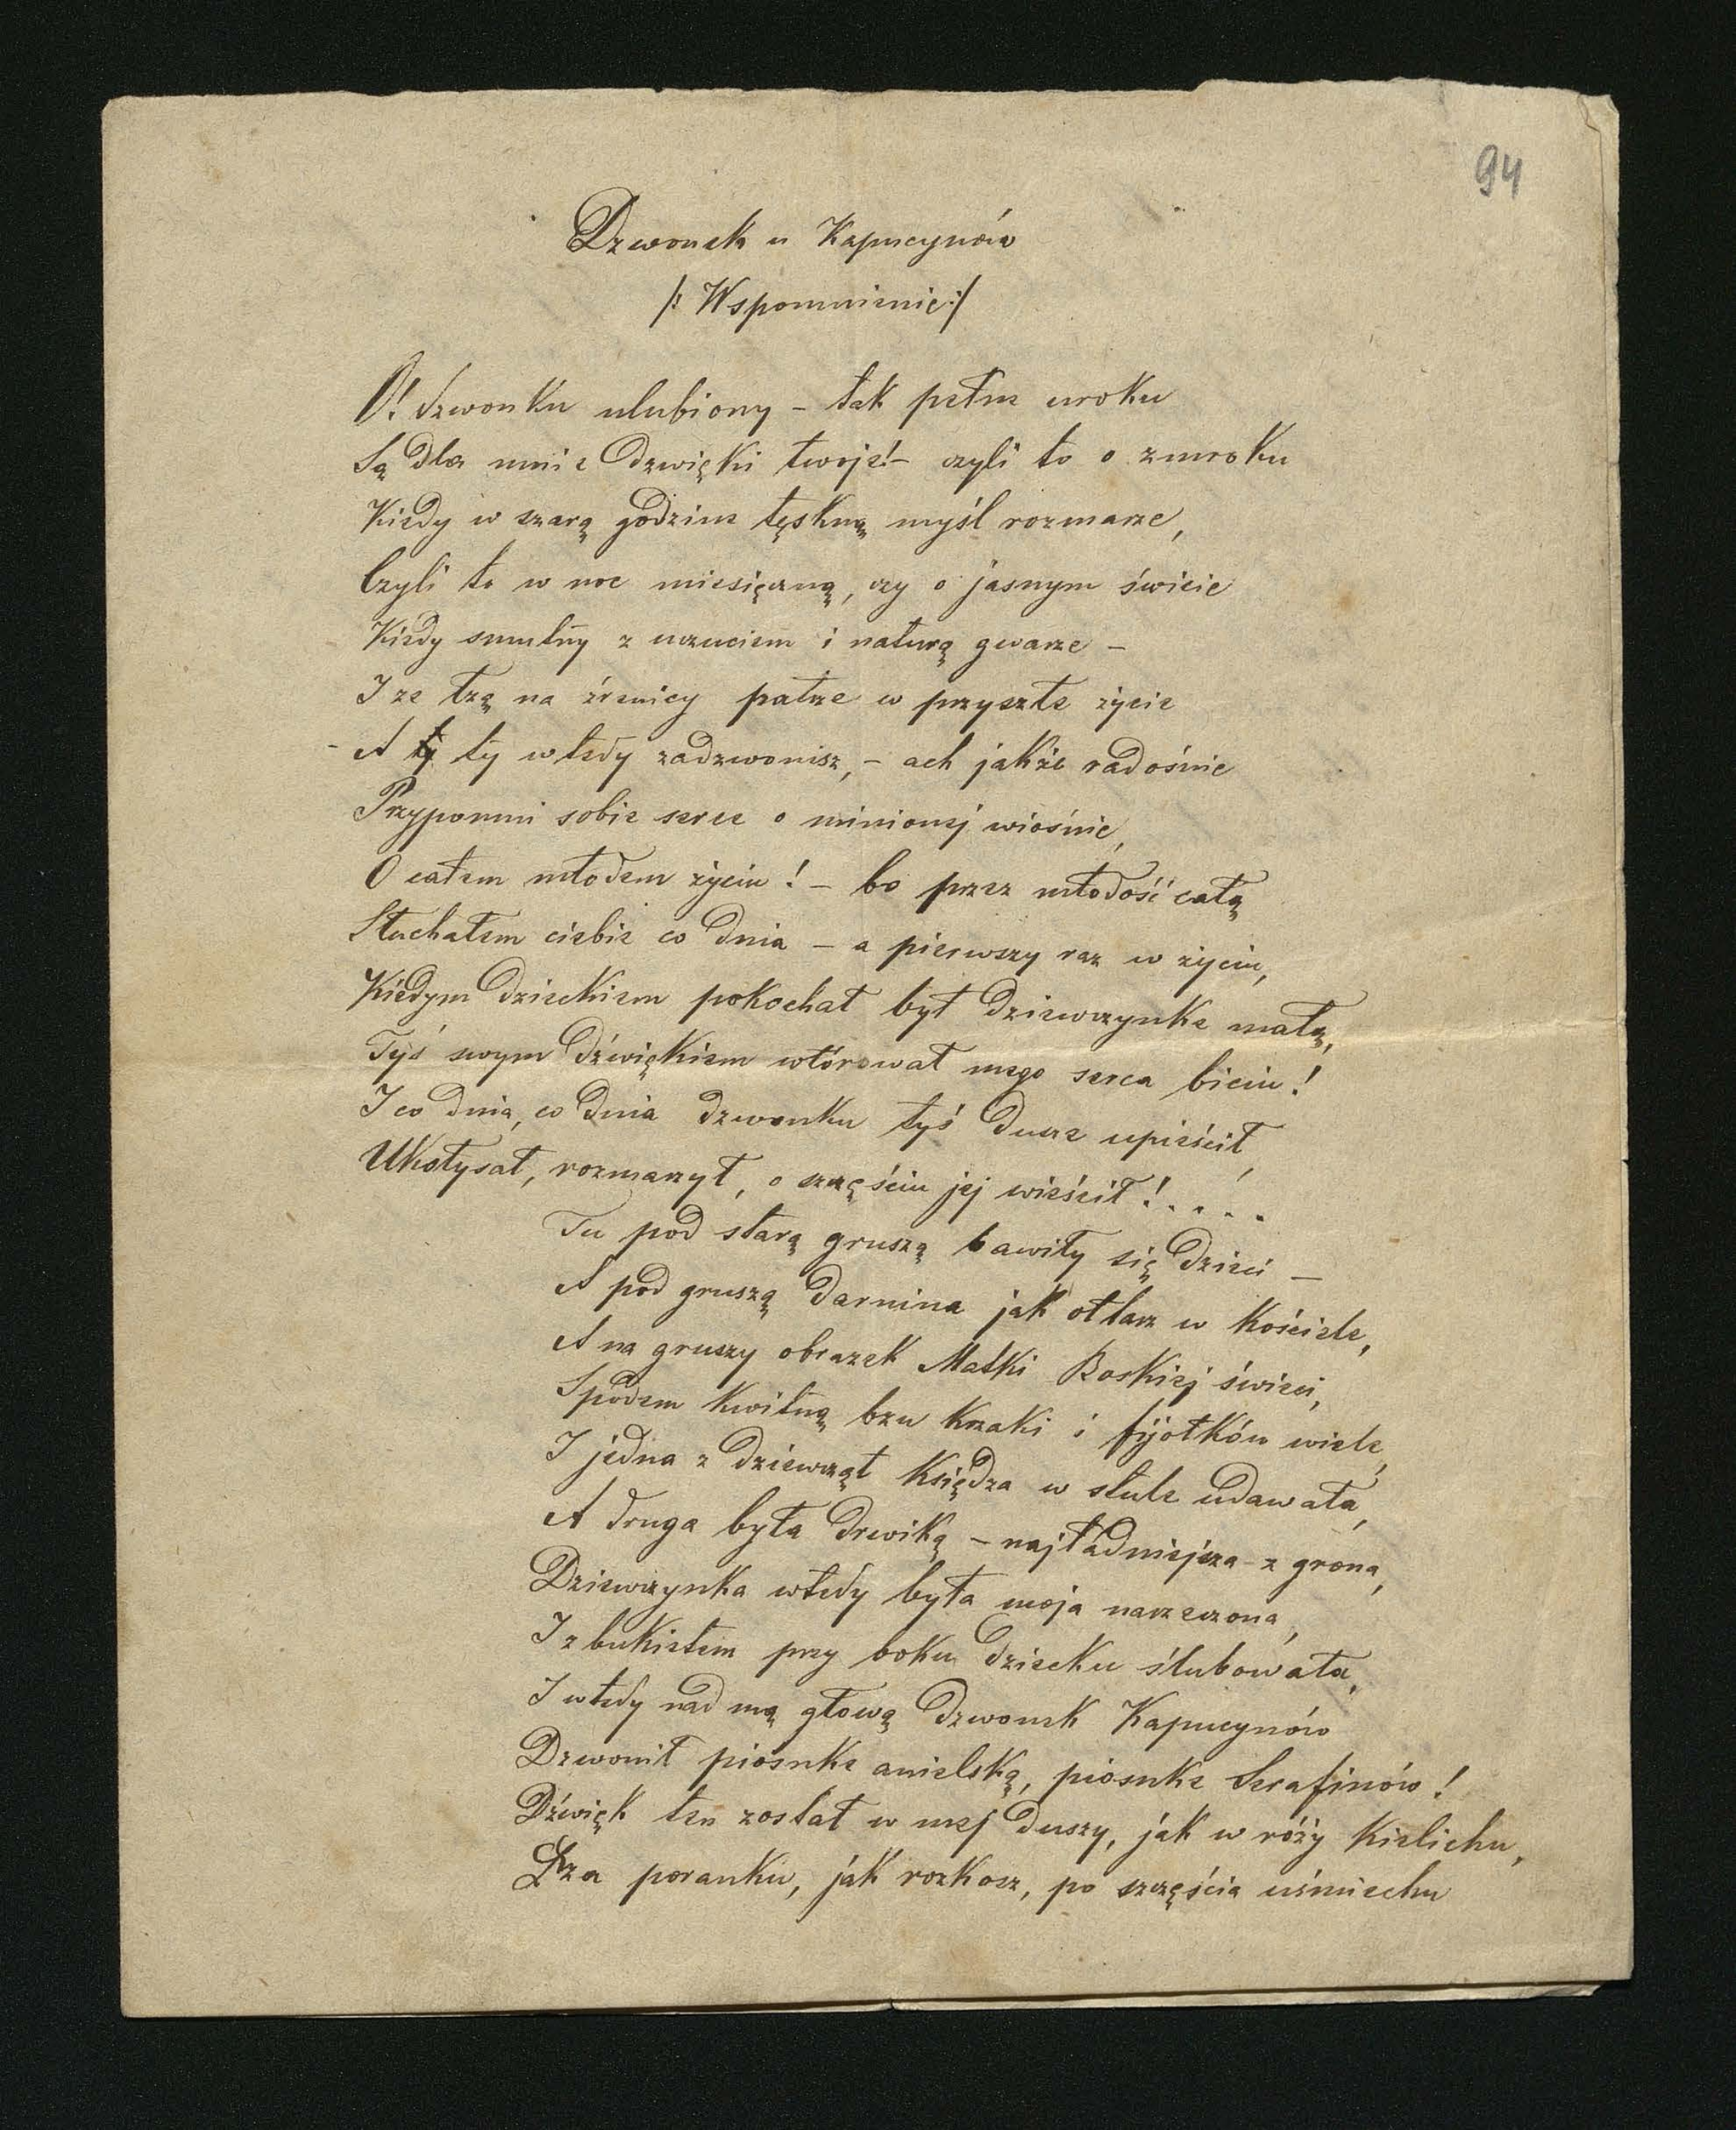 94
Dzwonek u Kapucynów
/: Wspomnienie :/
O! dzwonku ulubiony – tak pełne uroku
Są dla mnie dzwięki twoje! – czyli to o zmroku
Kiedy w szarą godzine tęskną myśl rozmarze,
Czyli to w noc miesięczną, czy o jasnym świcie
Kiedy smutny z uczuciem i naturą gwarze –
I ze łzą na źrenicy patrze w przyszłe życie
– A ty wtedy zadzwonisz, – ach jakże radośnie
Przypomni sobie serce o minionej wiośnie,
O całem młodem życiu! – bo przez młodość całą
Słuchałem ciebie co dnia – a pierwszy raz w życiu,
Kiedym dzieckiem pokochał był dziewczynke małą,
Tyś swym dźwiękiem wtórował mego serca biciu!
I co dnia, co dnia dzwonku tyś dusze upieścił,
Ukołysał, rozmarzył, o szczęściu jej wieścił! . . . . .
Tu pod starą gruszą bawiły się dzieci –
A pod gruszą darnina jak ołtarz w kościele,
A na gruszy obrazek Matki Boskiej świeci,
Spodem kwitną bzu krzaki i fijołków wiele,
I jedna z dziewcząt księdza w stule udawała,
A druga była drewiką – najładniejsza z grona,
Dziewczynka wtedy była moja narzeczona,
I z bukietem przy boku dziecku ślubowała,
I wtedy nad mą głową dzwonek Kapucynów
Dzwonił piosnke anielską, piosnke Serafinów!
Dźwięk ten został w mej duszy, jak w róży kielichu,
Łza poranku, jak rozkosz, po szczęścia uśmiechu